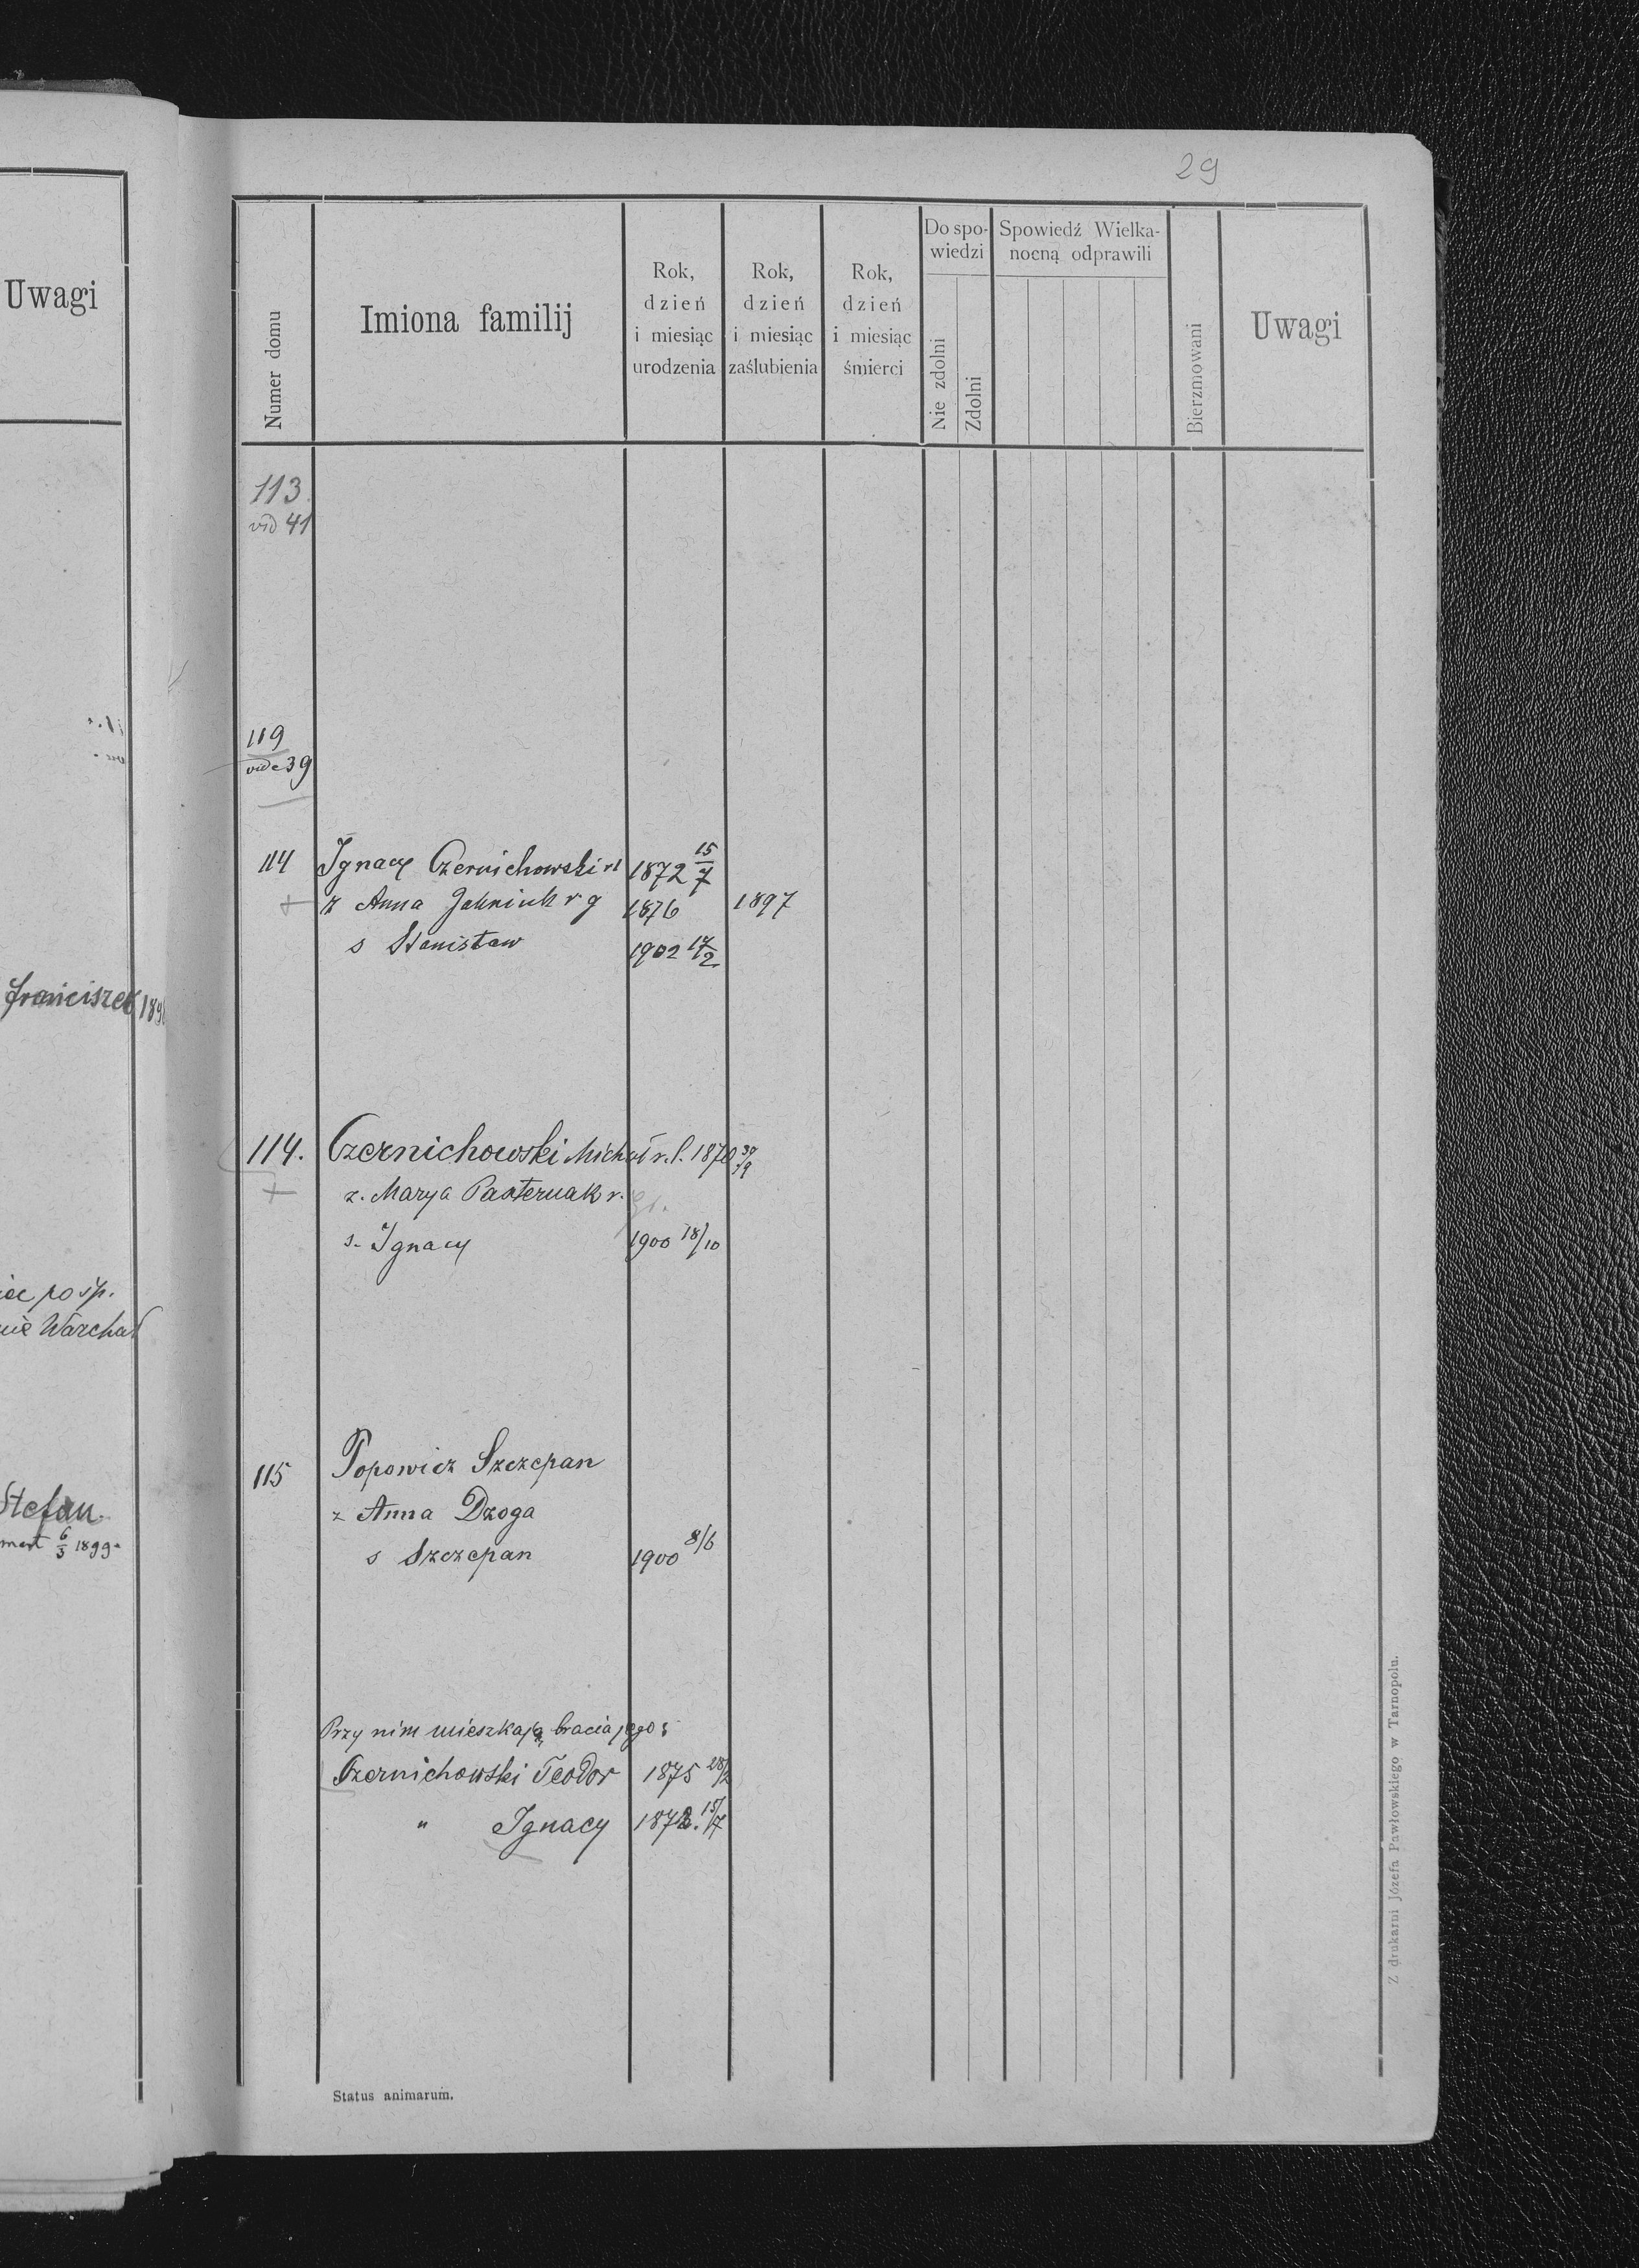 Uwagi
Franciszek 189
posp.
Warchał
Stefan
6/3 1899
29
Numer domu
Imiona familij
Rok, dzień i miesiąc urodzenia
Rok, dzień i miesiąc zaślubienia
Rok, dzień i miesiąc śmierci
Do spowiedzi
Nie zdolni
Zdolni
Spowiedź Wielkanocną odprawili
Bierzmowani
Uwagi
113
vid 41
119
vide 39
114 Ignacy Czernichowski rl 1872 15/7
+ ż Anna r g 1876 1897
s Stanisław 1902 17/2
114. Czernichowski Michał r. l. 1870 30/9
+ ż. Marya Pasternak r. gr.
s. Ignacy 1900 18/10
115 Popowicz Szczepan
ż Anna Dzoga
s Szczepan 1900 8/6
Przy nim mieszkają bracia jego:
Czernichowski Teodor 1875 28/2
" Ignacy 1872. 15/7
Status animarum.
Z drukarni Józefa Pawłowskiego w Tarnopolu.